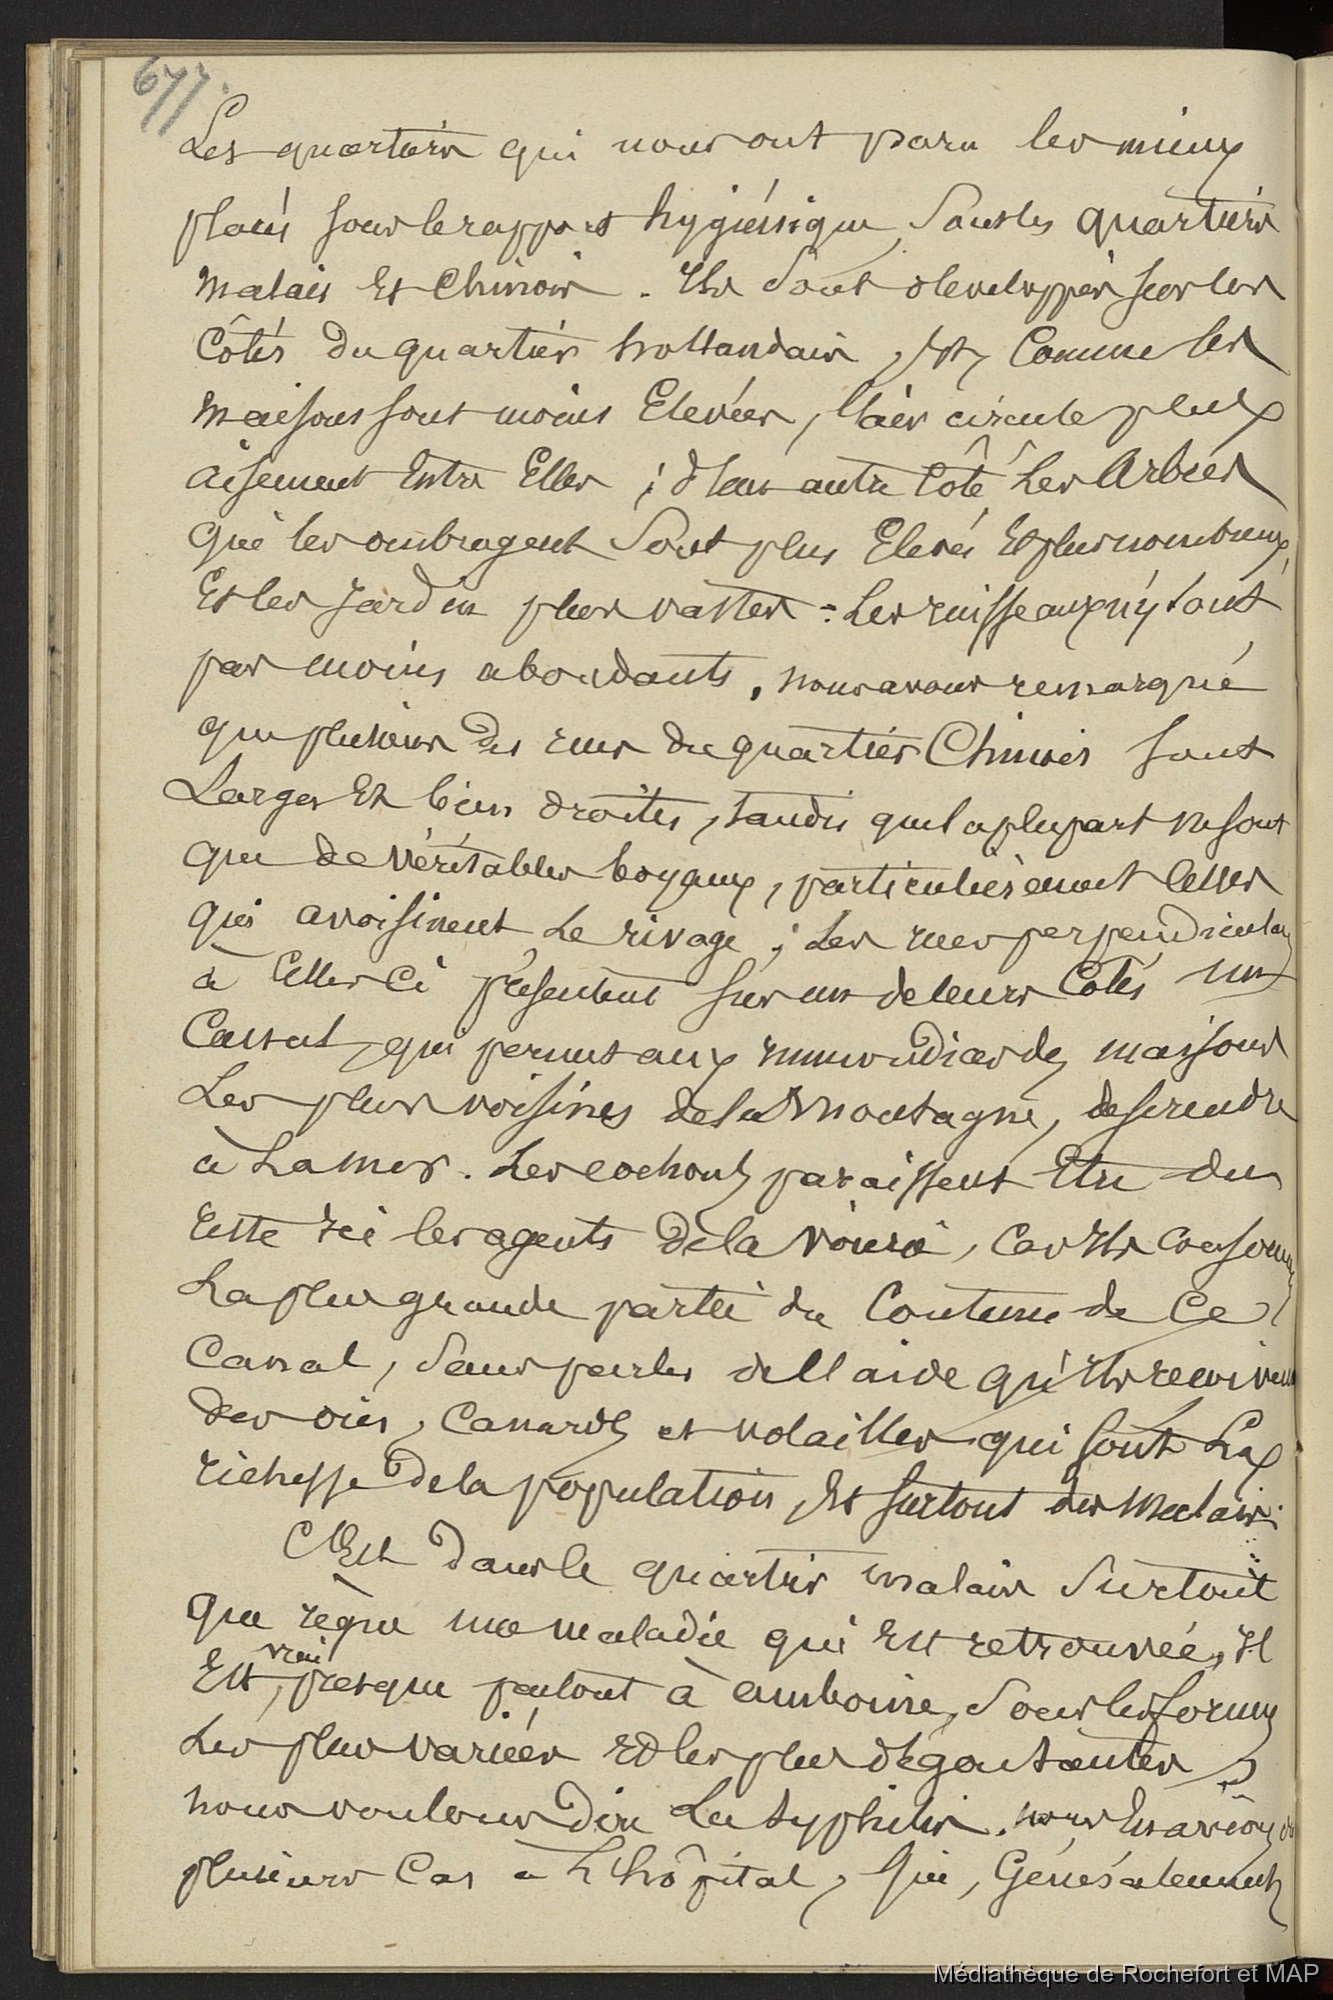 677.
Les quartiers qui nous ont paru les mieux
placés sous le rapport hygiénique, sont les quartiers
malais et chinois. Ils sont développés sur les
côtés du quartier hollandais, et, comme les
maisons sont moins élevées, l'air circule plus
aisement entre elles ; d'un autre côté les arbres
qui les ombragent sont plus élevés et plus nombreux,
et les jardin plus vastes : les ruisseaux n'y sont
pas moins abondants. nous avons remarqué
que plusieurs des rues du quartier Chinois sont
larges et bien droites, tandis que la plupart ne sont
que de véritables boyaux, particulièrement celles
qui avoisinent le rivage ; les rues perpendiculai
à celles ci présentent sur un de leurs côtés un
canal, qui permet aux immondices des maisons
les plus voisines de la montagne, descendre
à la mer. Les cochons paraissent être du
reste ici les agents de la voirie, car ils consomment
la plus grande partie du contenu de ce
canal, sans parler de l'aide qu'ils reçoivent
des oies, canards et volailles qui sont la
richesse de la population, et surtout des malais.
C'est dans le quartier malais surtout
que règne une maladie qui est retrouvée, il
est vrai, presque partout à amboine, sous les formes
les plus variées et les plus dégoutantes ;
nous voulons dire la syphilis. nous en avions eu
plusieurs cas à l'hôpital, qui, généralement
Médiathèque de Rochefort et MAP